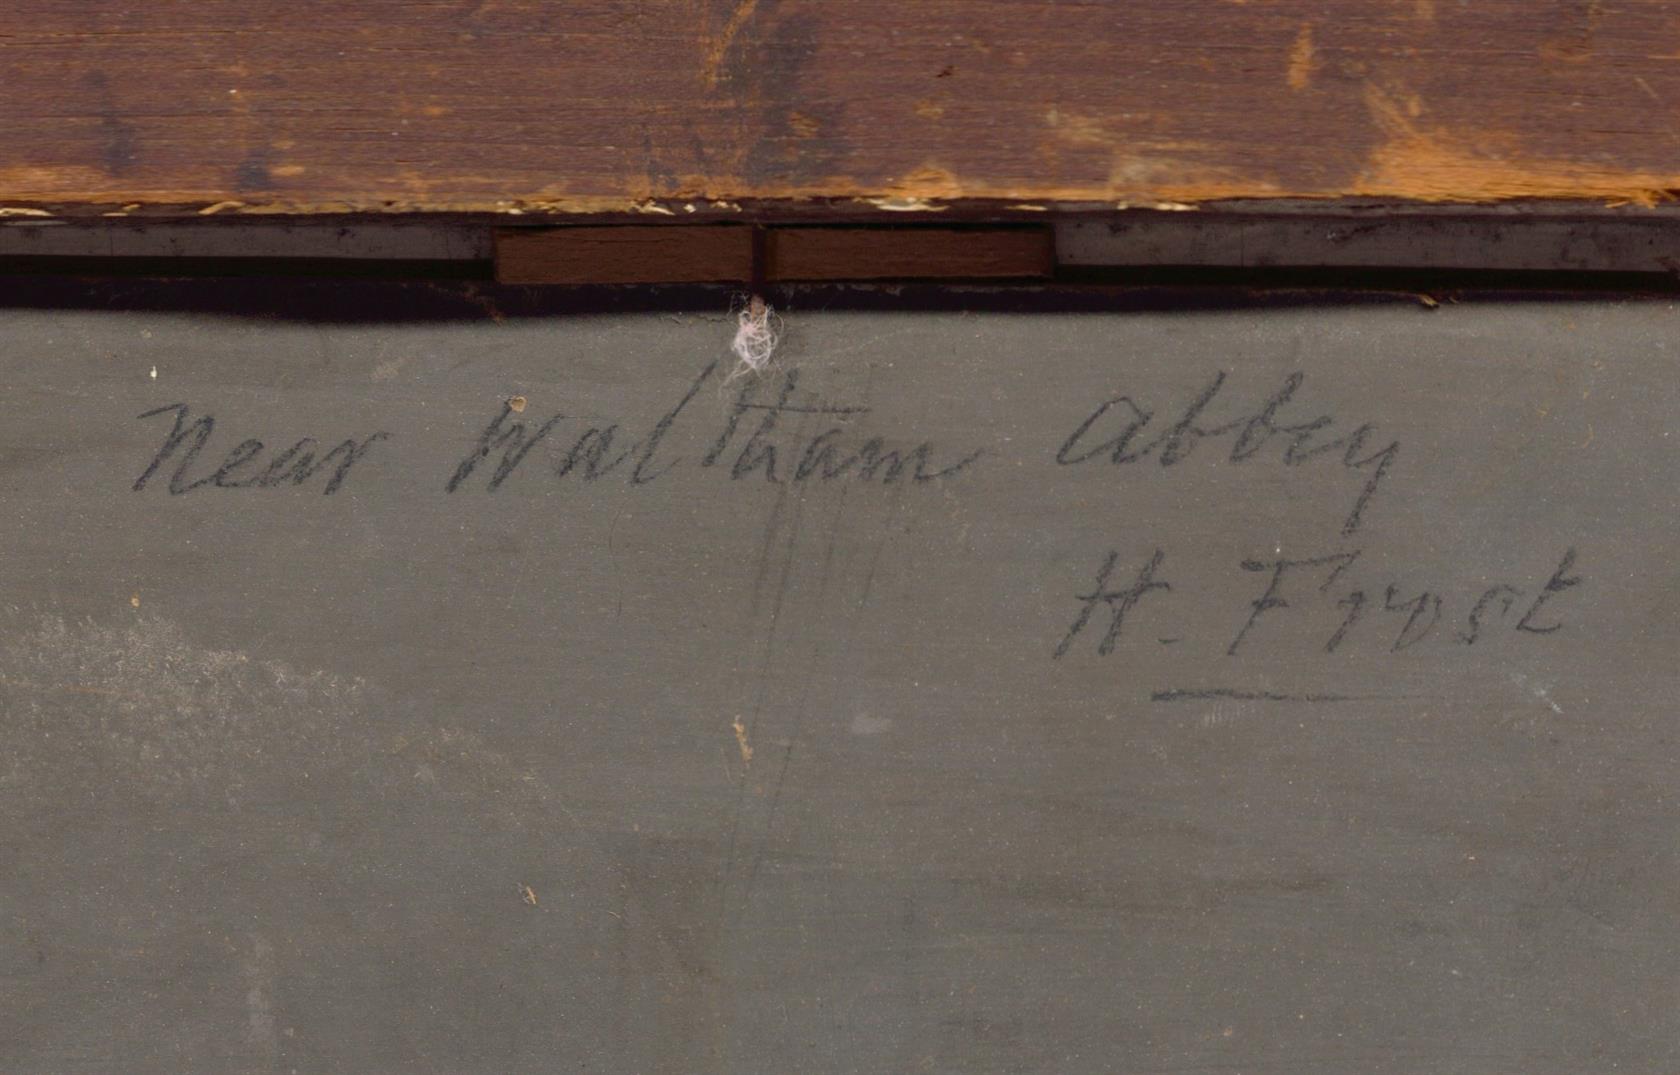 Near Waltham Abbey
H. Frost